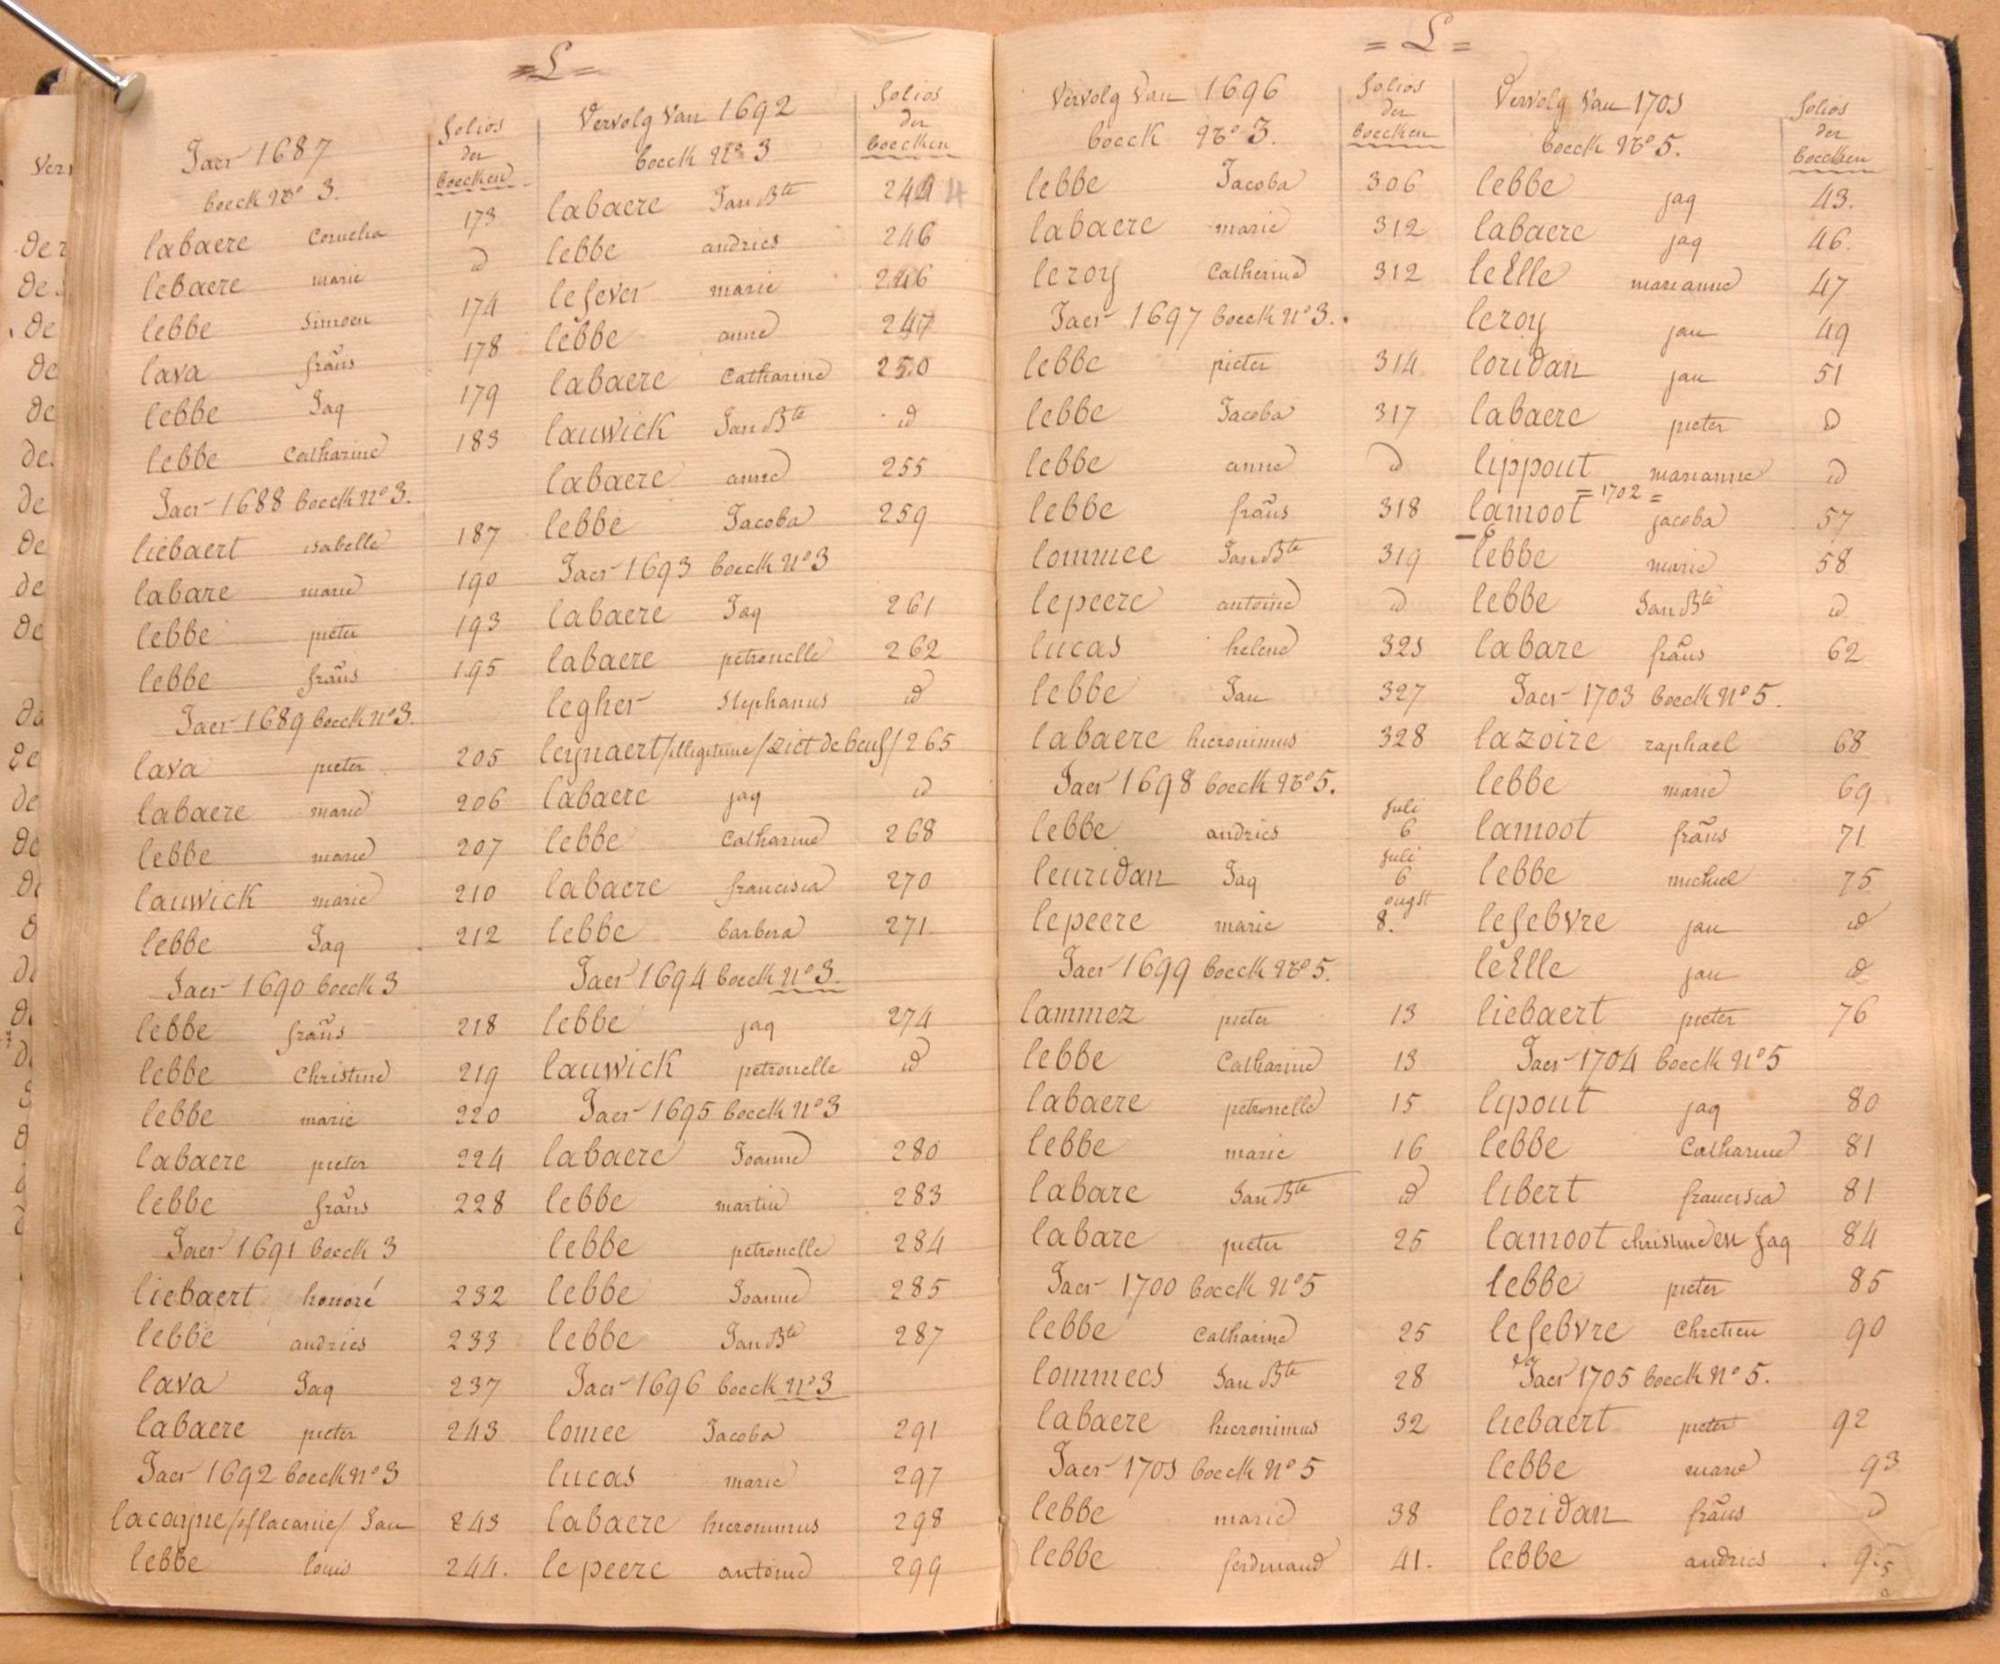 = L =
Jaer 1687
boeck No 3.
folios
der
boecken
labaere Cornelia 173
lebaere marie d
lebbe Simoen 174
lava frãns 178
lebbe Jaq 179
lebbe Catharine 183
Jaer 1688 boeck No 3.
liebaert isabelle 187
labare marie 190
lebbe pieter 193
lebbe frãns 195
Jaer 1689 boeck No 3.
lava pieter 205
labaere marie 206
lebbe marie 207
lauwick marie 210
lebbe Jaq 212
Jaer 1690 boeck 3
lebbe frãns 218
lebbe Christine 219
lebbe marie 220
labaere pieter 224
lebbe frãns 228
Jaer 1691 boeck 3
liebaert honoré 232
lebbe andries 233
lava Jaq 237
labaere pieter 243
Jaer 1692 boeck No 3
lacayne /of lacanie/ Jan 243
lebbe louis 244.
Vervolg Van 1692
boeck No 3
folios
der
boecken
labaere Jan Bte 244
lebbe andries 246
lefever marie 246
lebbe anne 247
labaere Catharine 250
lauwick Jan Bte d
labaere anne 255
lebbe Jacoba 259
Jaer 1693 boeck No 3
labaere Jaq 261
labaere petronelle 262
legher Stephanus d
leynaert /illigitime/ ziet de beuf/ 265
labaere jaq d
lebbe Catharine 268
labaere francisca 270
lebbe barbera 271
Jaer 1694 boeck No 3.
lebbe jaq 274
lauwick petronelle d
Jaer 1695 boeck No 3
labaere Joanne 280
lebbe martin 283
lebbe petronelle 284
lebbe Joanne 285
lebbe Jan Bte 287
Jaer 1696 boeck No 3
lomee Jacoba 291
lucas marie 297
labaere hieronimus 298
le peere antoine 299
= L =
Vervolg Van 1696
boeck No 3.
folios
der
boecken
lebbe Jacoba 306
labaere marie 312
leroy Catherine 312
Jaer 1697 boeck No 3.
lebbe pieter 314
lebbe Jacoba 317
lebbe anne d
lebbe frãns 318
lommee Jan Bte 319
lepeere antoine d
lucas helene 323
lebbe Jan 327
labaere hieronimus 328
Jaer 1698 boeck No 5.
lebbe andries juli 6
leuridan Jaq juli 6
lepeere marie ougst 8.
Jaer 1699 boeck No 5.
lammez pieter 13
lebbe Catharine 13
labaere petronelle 15
lebbe marie 16
labare Jan Bte d
labare pieter 25
Jaer 1700 boeck No 5
lebbe Catharine 25
lommees Jan Bte 28
labaere hieronimus 32
Jaer 1701 boeck No 5
lebbe marie 38
lebbe ferdinand 41.
Vervolg Van 1701
boeck No 5.
folios
der
boecken
lebbe jaq 43.
labaere jaq 46.
leElle marianne 47
leroy jan 49
loridan jan 51
labaere pieter d
lippout marianne d
= 1702 =
lamoot jacoba 57
lebbe marie 58
lebbe Jan Bte d
labare frãns 62
Jaer 1703 boeck No 5.
lazoire raphael 68
lebbe marie 69
lamoot frãns 71
lebbe michiel 75
lefebvre jan d
leElle jan d
liebaert pieter 76
Jaer 1704 boeck No 5
lipout jaq 80
lebbe Catharine 81
libert francisca 81
lamoot christine en Jaq 84
lebbe pieter 85
lefebvre Chretien 90
Jaer 1705 boeck No 5.
liebaert pieter 92
lebbe marie 93
loridan frãns d
lebbe andries 95